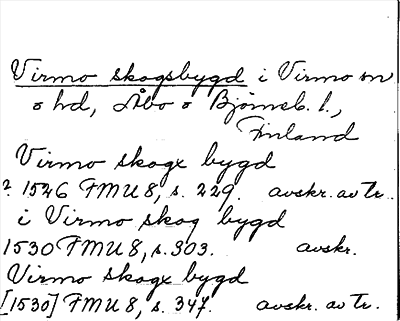 Virmo skogsbygd i Virmo sn
o hd, Åbo o Björneb. l.,
Finland
Virmo skoge bygd
? 1526 FMU 8, s. 229. avskr. av tr.
i Virmo skog bygd
1530 FMU 8, s. 303. avskr.
Virmo skoge bygd
[1530] FMU 8, s. 347. avskr. av tr.